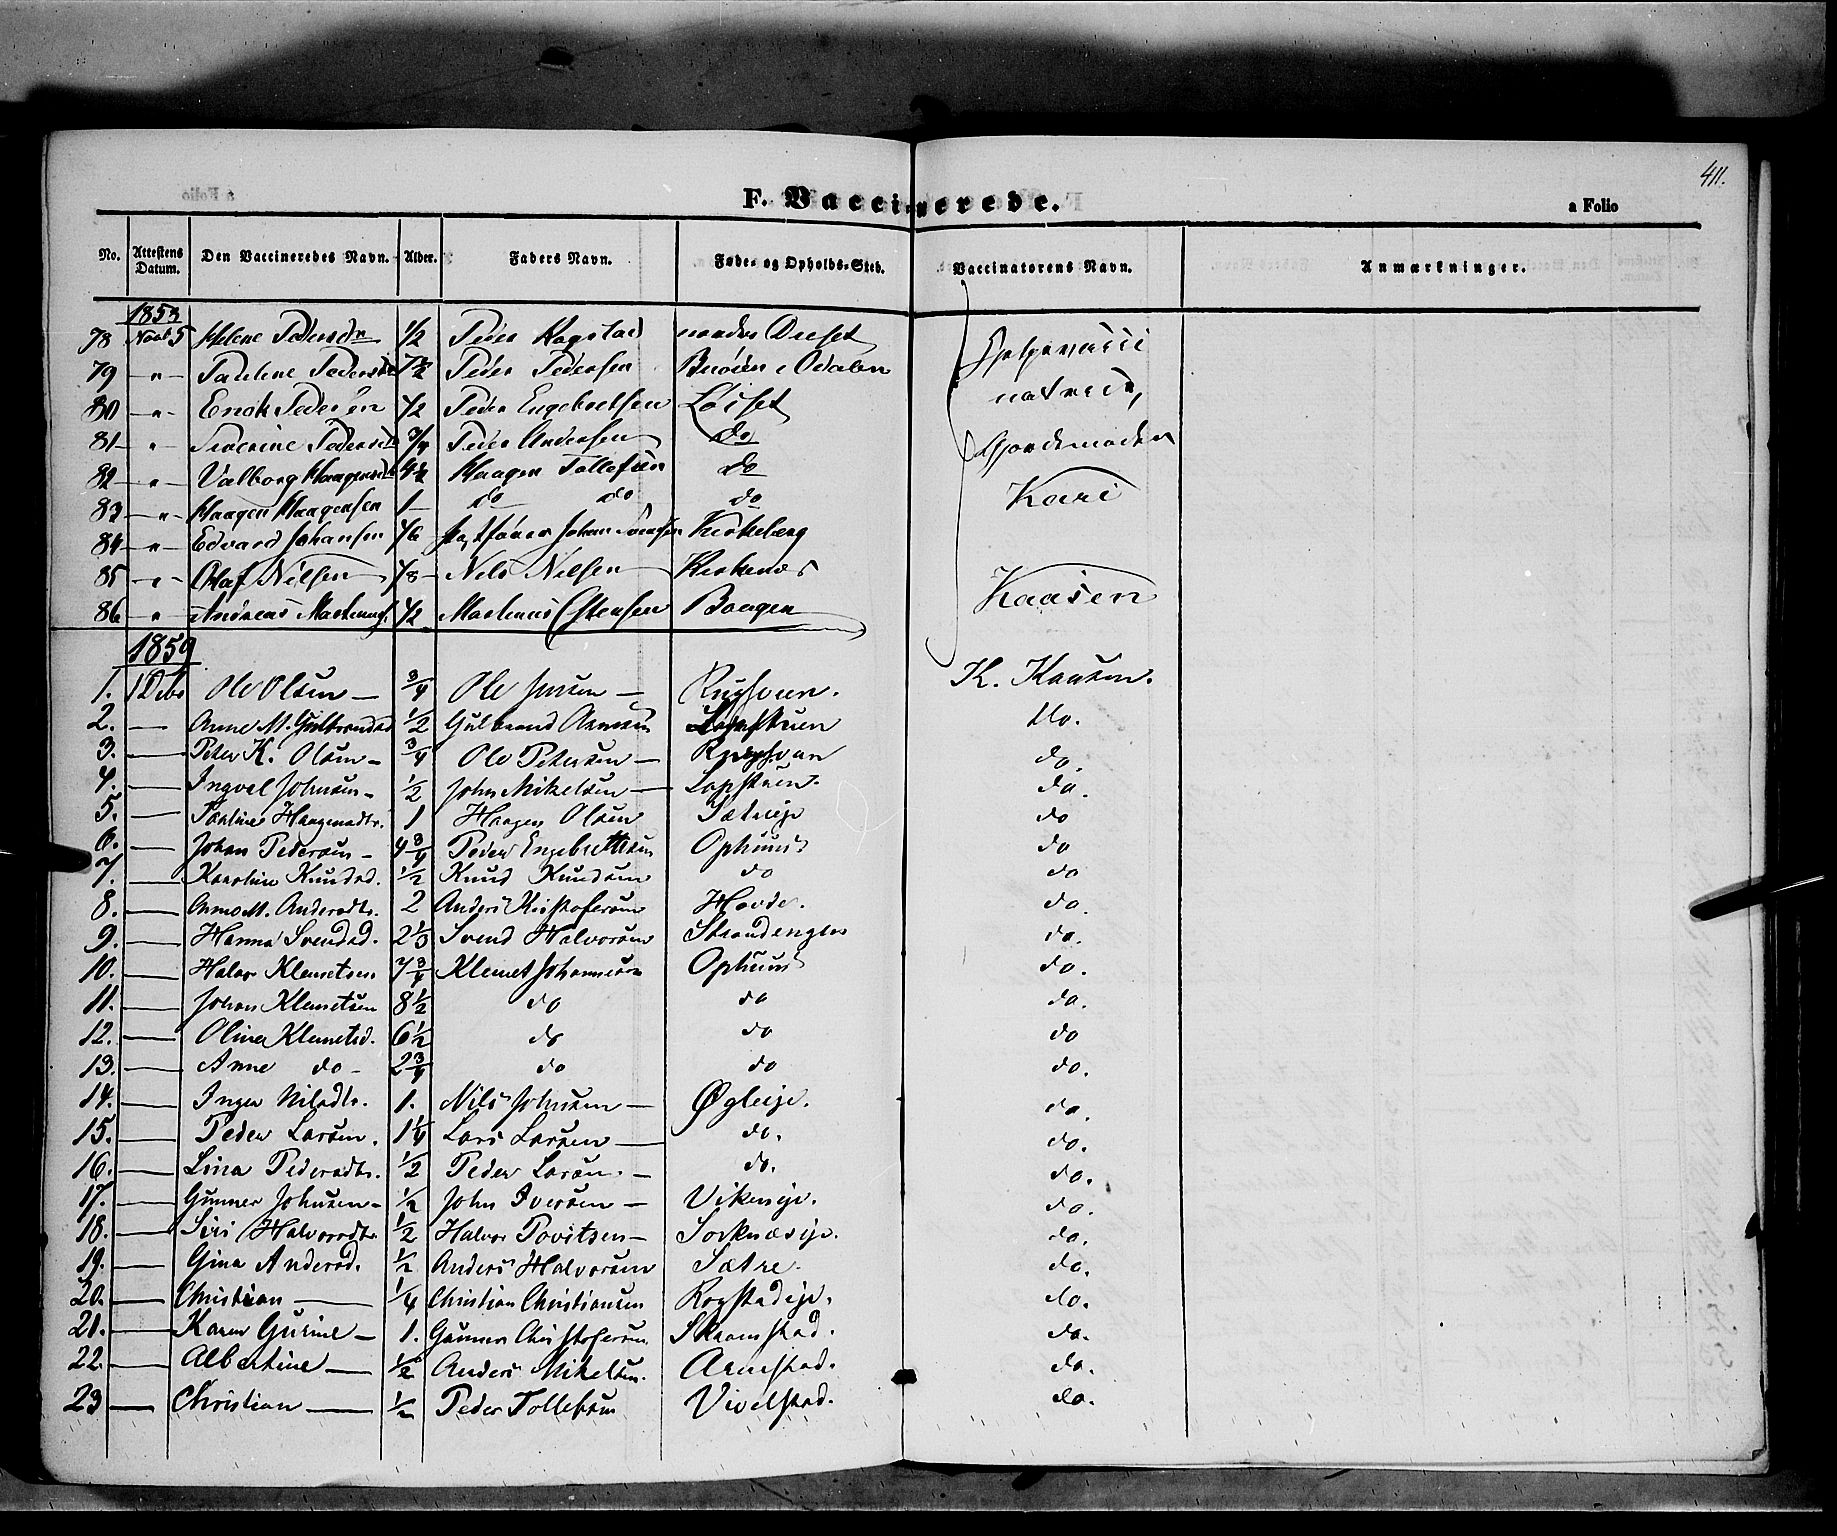 411.
F. Vaccinerede.
a Folio
No. Attestens Datum. Den Vaccineredes Navn. Alder. Faders Navn. Føde- og Opholds-Sted. Vaccinatorens Navn. Anmærkninger.
1853
78 5 Helene Pedersdr 1/2 Peder Hogstad
79 " Pauline Peder Pedersen i Odalen
80 " Erik Pedersen 1/2 Peder Engebretsen Løiset
81 " Severine 3/4 Peder Andersen do
82 " Valborg Haagensdr Haagen Tollefsen do
83 " Haagen Haagensen 1 do do do
84 " Edvard Johansen Johan Kirkeberg
85 " Olaf Nilsen Nils Nilsen Kirkenæs
86 " Andreas 1/2 Martinus Estensen Baagen
Gjordemoder
Kari
Kaasen
1859
1. Ole Olsen 3/4 Ole Jensen K. Kaasen.
2. Anne M. Gulbrandsd 1/2 Gulbrand do.
3. Peter K. Olsen 3/4 Ole Petersen do.
4. Ingval Johnsen 1/2 John Mikelsen do.
5. Haagensdtr. 1 Haagen Olsen Sætreje do
6. Johan Pedersen 4 3/4 Peder Engebrettsen Ophuus do
7. Karoline Knudsd. 1/2 Knud Knudsen do do
8. Anne M. Andersdtr. 2 Anders Kristofersen Hovde. do.
9. Hanna Svendsd. 2 1/3 Svend Halvorsen Strandengen do.
10. Halvor Klemetsen 7 3/4 Klemet Johannesen Ophuus do.
11. Johan Klemetsen 8 1/2 do do do.
12. Olina Klemetsd. 6 1/2 do do do
13. Anne do 2 3/4 do do do.
14. Inger Nilsdtr. 1. Nils Johnsen Øgleije. do.
15. Peder Larsen. 1 1/4 Lars Larsen do. do.
16. Lina Pedersdtr. 1/2 Peder Larsen. do. do.
17. Gunner Johnsen 1/2 John Iversen Vikeneje. do.
18. Siri Halvorsdtr 1/2 Halvor Povelsen Sorknæseje. do.
19. Gina Andersd. 1/2 Anders Halvorsen Sætre. do.
20. Christian 1/4 Christian Christiansen Rogstadeje. do.
21. Karen Gurine 1. Gunner Christofersen Skramstad. do.
22. Albertine 1/2 Anders Mikelsen. Arnestad. do.
23 Christian 1/2 Peder Tollefsen Vivelstad. do.